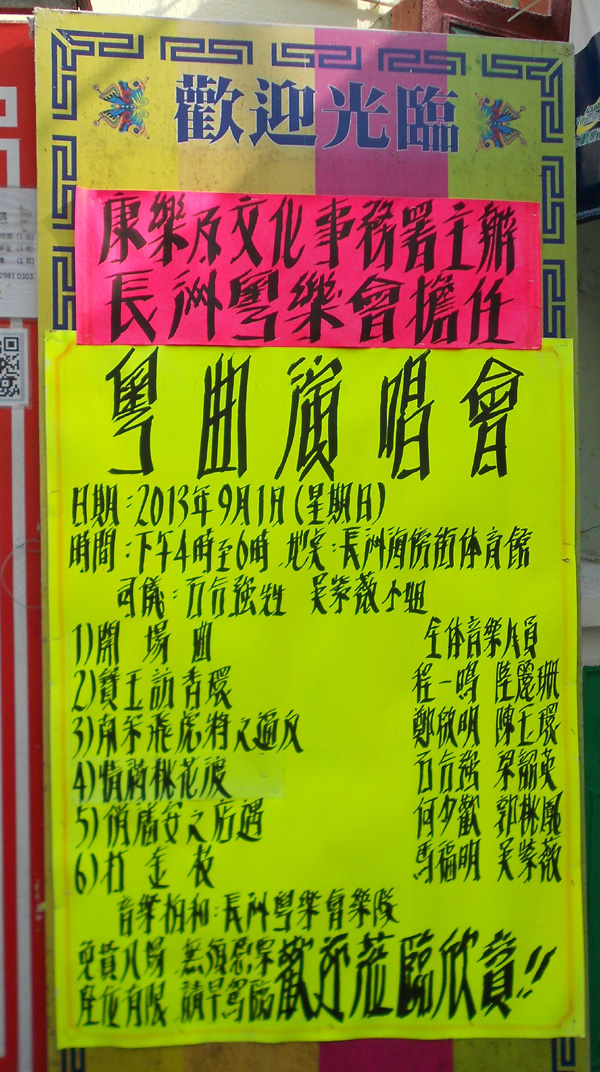 歡迎光臨
康樂及文化事務署主辦
長洲粵樂會擔任
粵曲演唱會
日期：2013年9月1日(星期日)
時間：下午4時至6時 地點：長洲海傍街体育館
司儀： 吳紫薇小姐
1)開場曲
全体音樂人員
2)寶玉訪青環
程一鳴 陸麗珊
3) 飛虎將之遍
鄭欣明 陳玉環
4)情滿桃花渡
5)俏潘安之店遇
何少歡 郭桃鳳
6)打金枝
馬福明 吳紫薇
音樂拍和：長洲粵樂會樂隊
免費入場 無須憑票
座位有限 請早駕臨
歡迎蒞臨欣賞!!
2981 0303